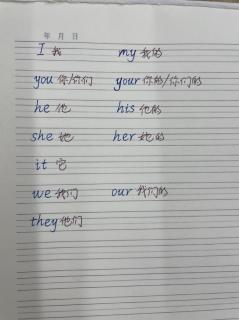 年 月 日
I 我 my 我的
you 你/你们 your 你的/你们的
he 他 his 他的
she 她 her 她的
it 它
we 我们 our 我们的
they 他们